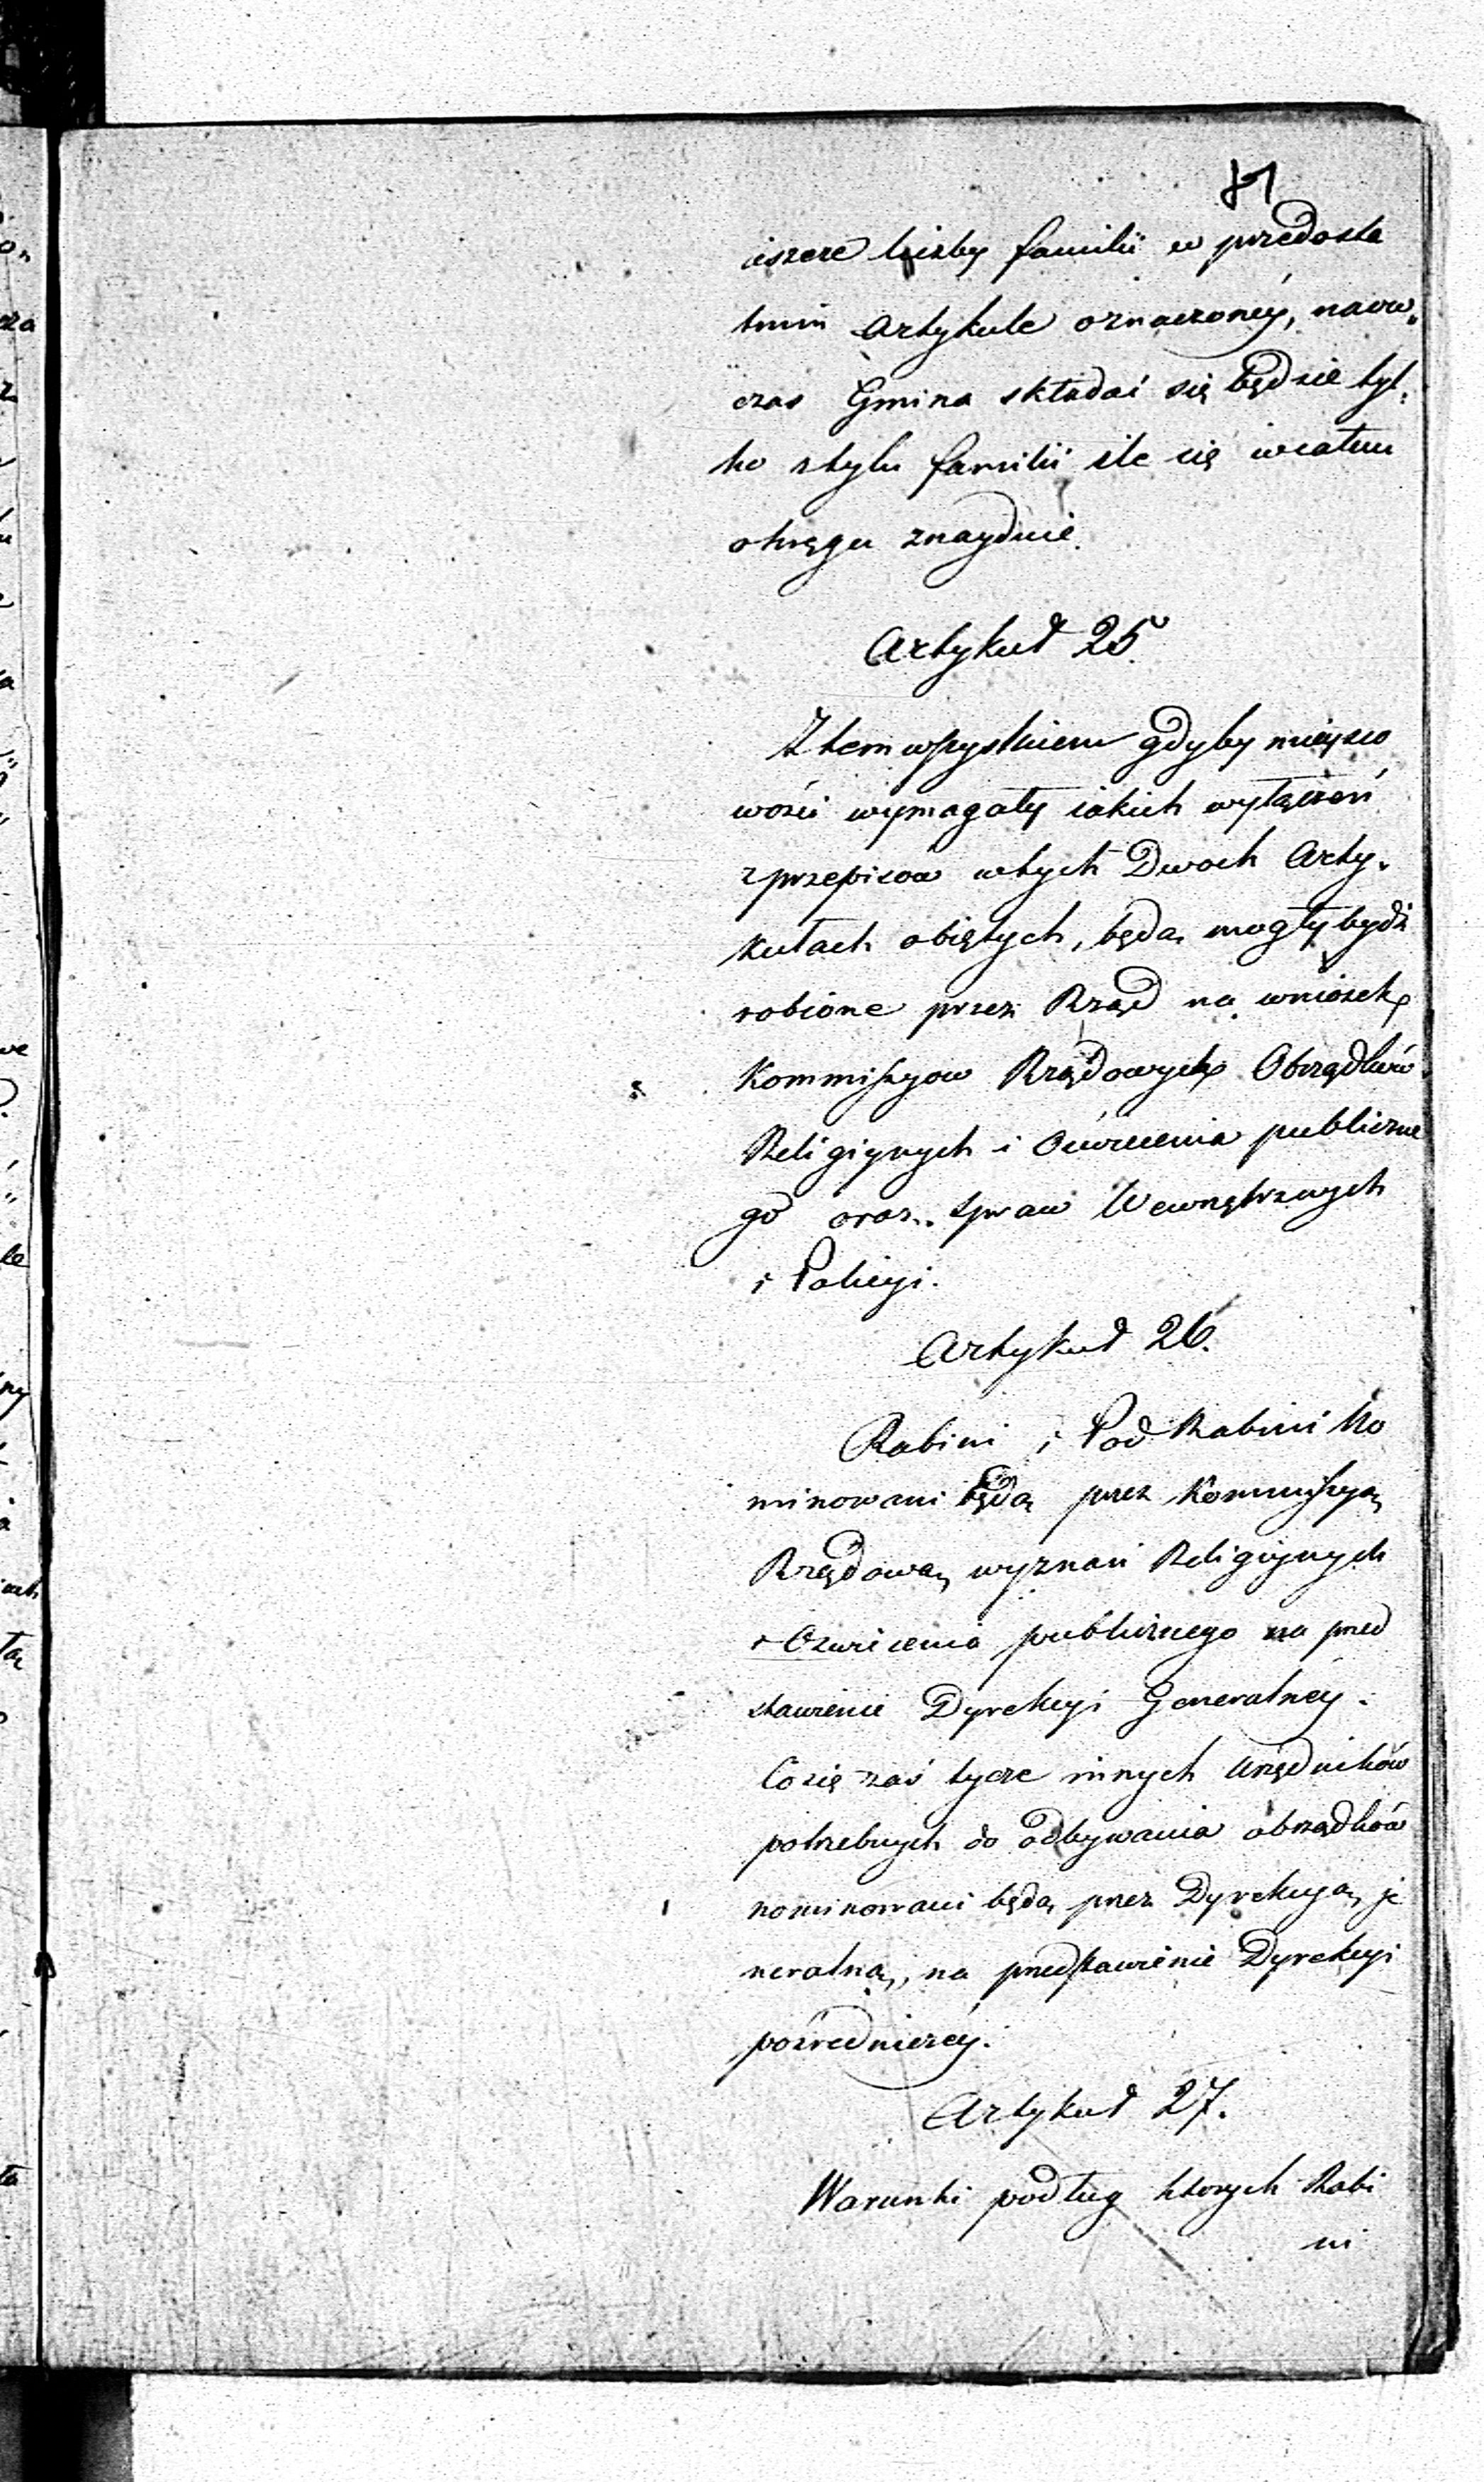 51
ieszcze liczby familii w przedosta
tnim Artykule oznaczoney, naow„
czas Gmina składać się będzie tyl„
ko z tylu familii ile się w całem
okręgu znayduie.
Artykuł 25
Z tem wszystkiem gdyby mieysco
wości wymagały iakich wyłączeń
z przepisow w tych Dwoch Arty„
kułach obiętych, będą mogły bydź
robione przez Rząd na wniosek
Kommissyow Rządowych Obrządków
Religiynych i Oświecenia publiczne
go oraz Spraw Wewnętrznych
i Policyi.
Artykuł 26.
Rabini i Pod Rabini No
minowani będą przez Kommissyą
Rządową wyznań Religiynych
i Oświecenia publicznego na przed
stawienie Dyrekcyi Generalnéy.
Co się zaś tycze innych Urzędników
potrzebnych do odbywania obrządków
nominowani będą przez Dyrekcyą je
neralną, na przedstawienie Dyrekcyi
pośredniczéy.
Artykuł 27.
Warunki podług ktorych Rabi
ni